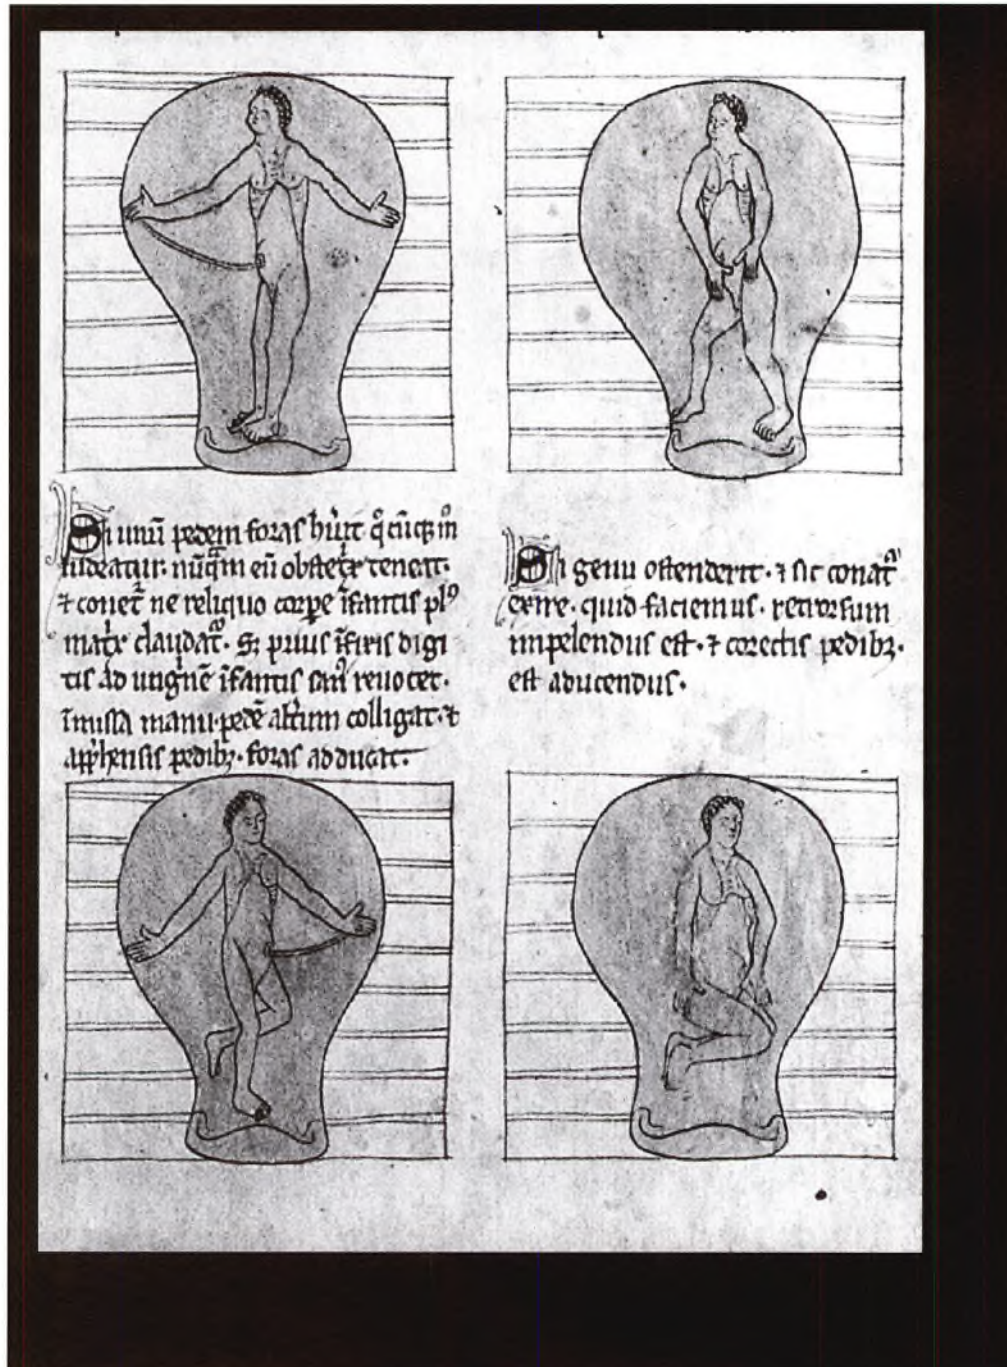 Si unū pedem foras hūit q̊cūq; m̊
uideatur. nūq̄m eū obstetx̄ teneat.
⁊ conet̄ ne reliquo corpe īfantis pl⁹
matx̄ claudat᷒. S; prius īfiris digi
tis ad ungnē īfantis reuocet.
īmissa manu pedē altum colligat. ⁊
apphensis pedib;. foras adducat.
Si genu ostenderit. ⁊ sic conat᷒
exire. quid faciemus. retrorsum
impelendus est. ⁊ corectis pedib;.
est aducendus.